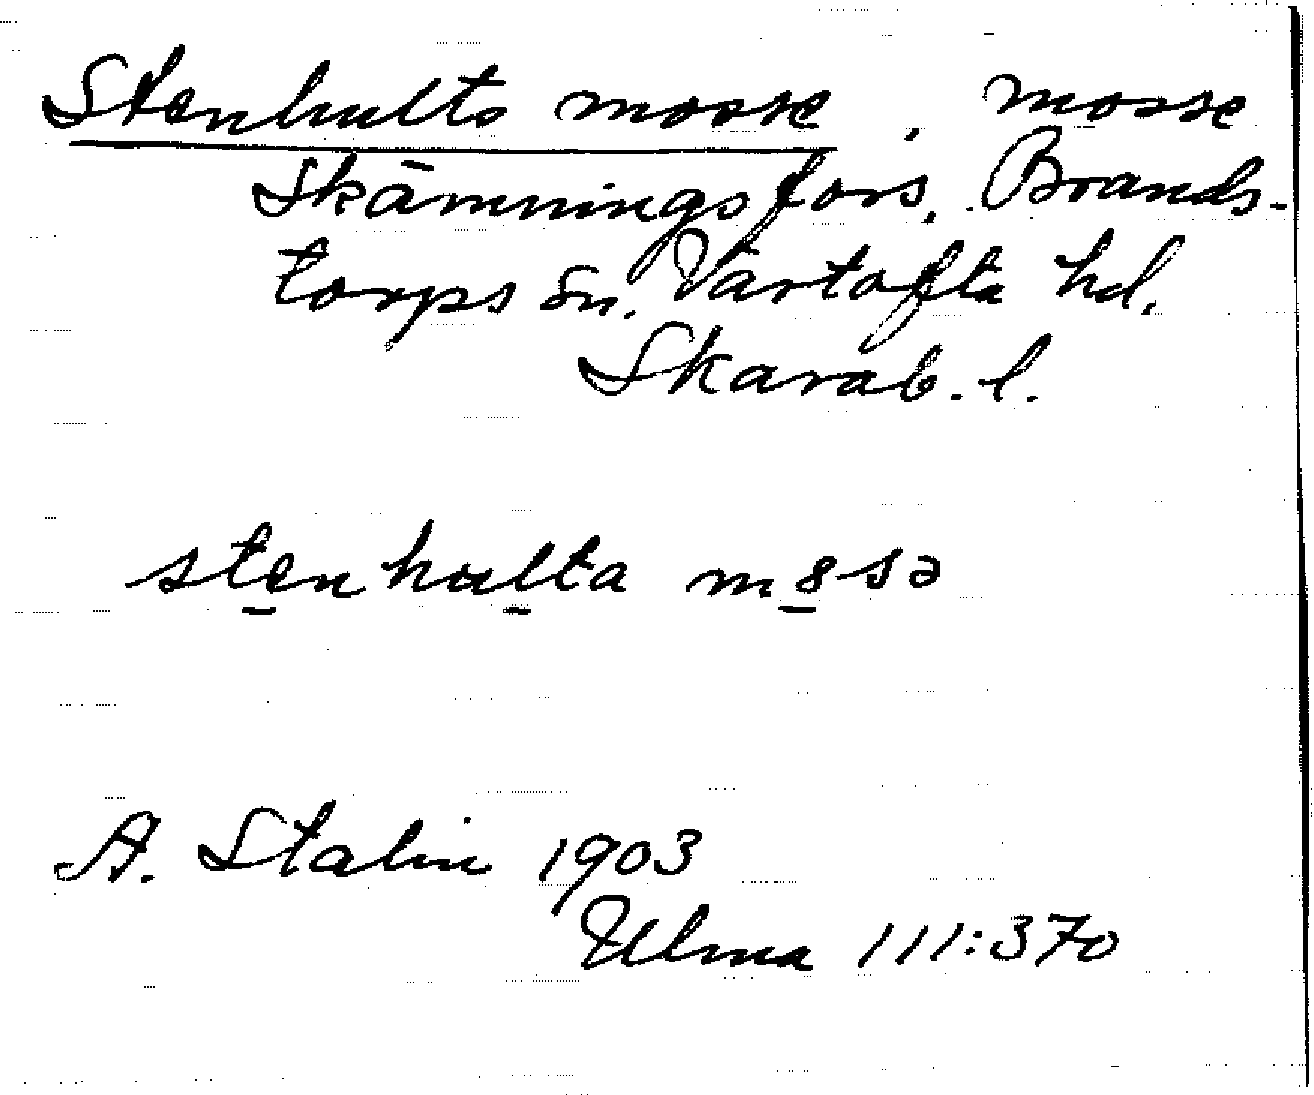 Stenhults mosse, mosse
Skämningsfors, Brands-
torps sn. Vartofta hd.
Skarab. l.
stenhulta m8sə
A. Stalin 1903
Ulma 111:370